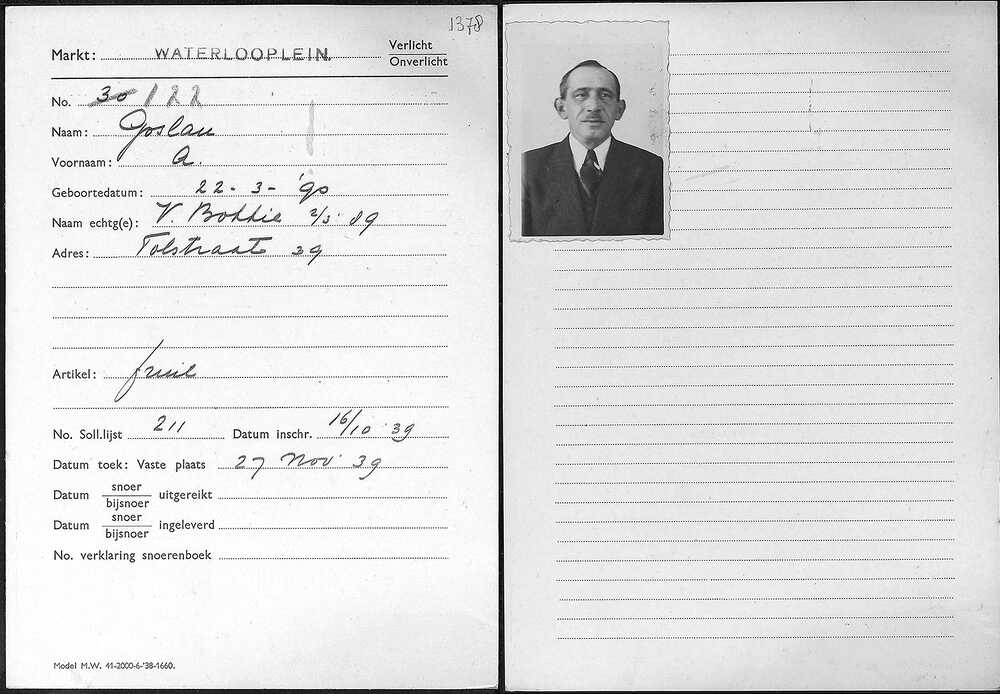 1378
Markt: WATERLOOPLEIN. Verlicht
Onverlicht
No. 30 122
Naam: Goslau
Voornaam: A.
Geboortedatum: 22-3-'90
Naam echtg(e): V. Bottie 2/3 '89
Adres: Tolstraat 39
Artikel: fruit
No. Soll.lijst 211 Datum inschr. 16/10 '39
Datum toek: Vaste plaats 27 Nov 39
Datum snoer uitgereikt
bijsnoer
Datum snoer ingeleverd
bijsnoer
No. verklaring snoerenboek
Model M.W. 41-2000-6-'38-1660.